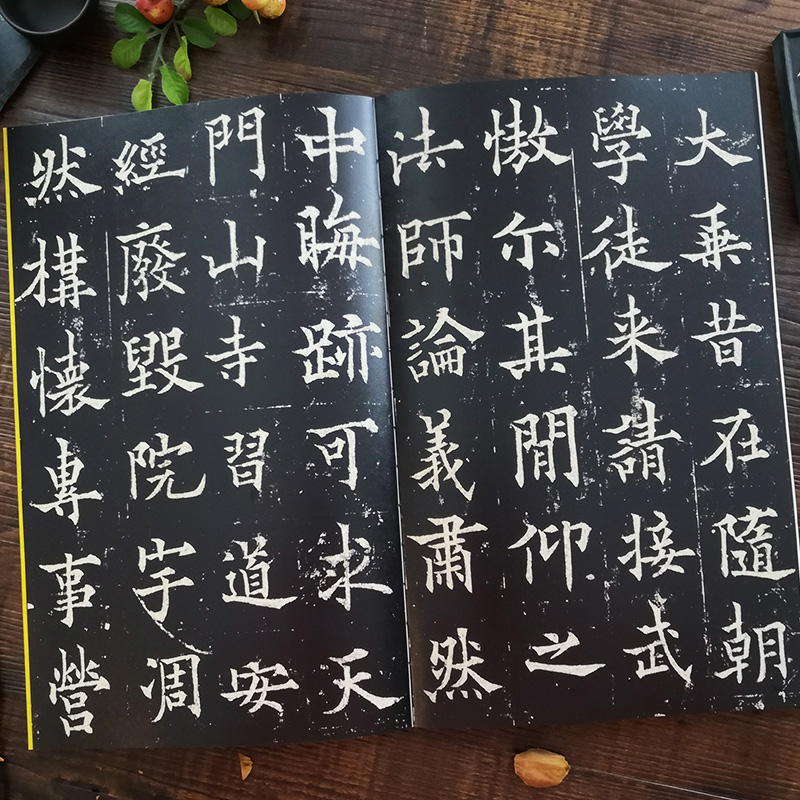 大乗昔在隨朝
學徒来請接武
慠尒其間仰之
法師論義肅然
中晦跡可求天
門山寺習道安
經廢毀院宇凋
然構懷專事營